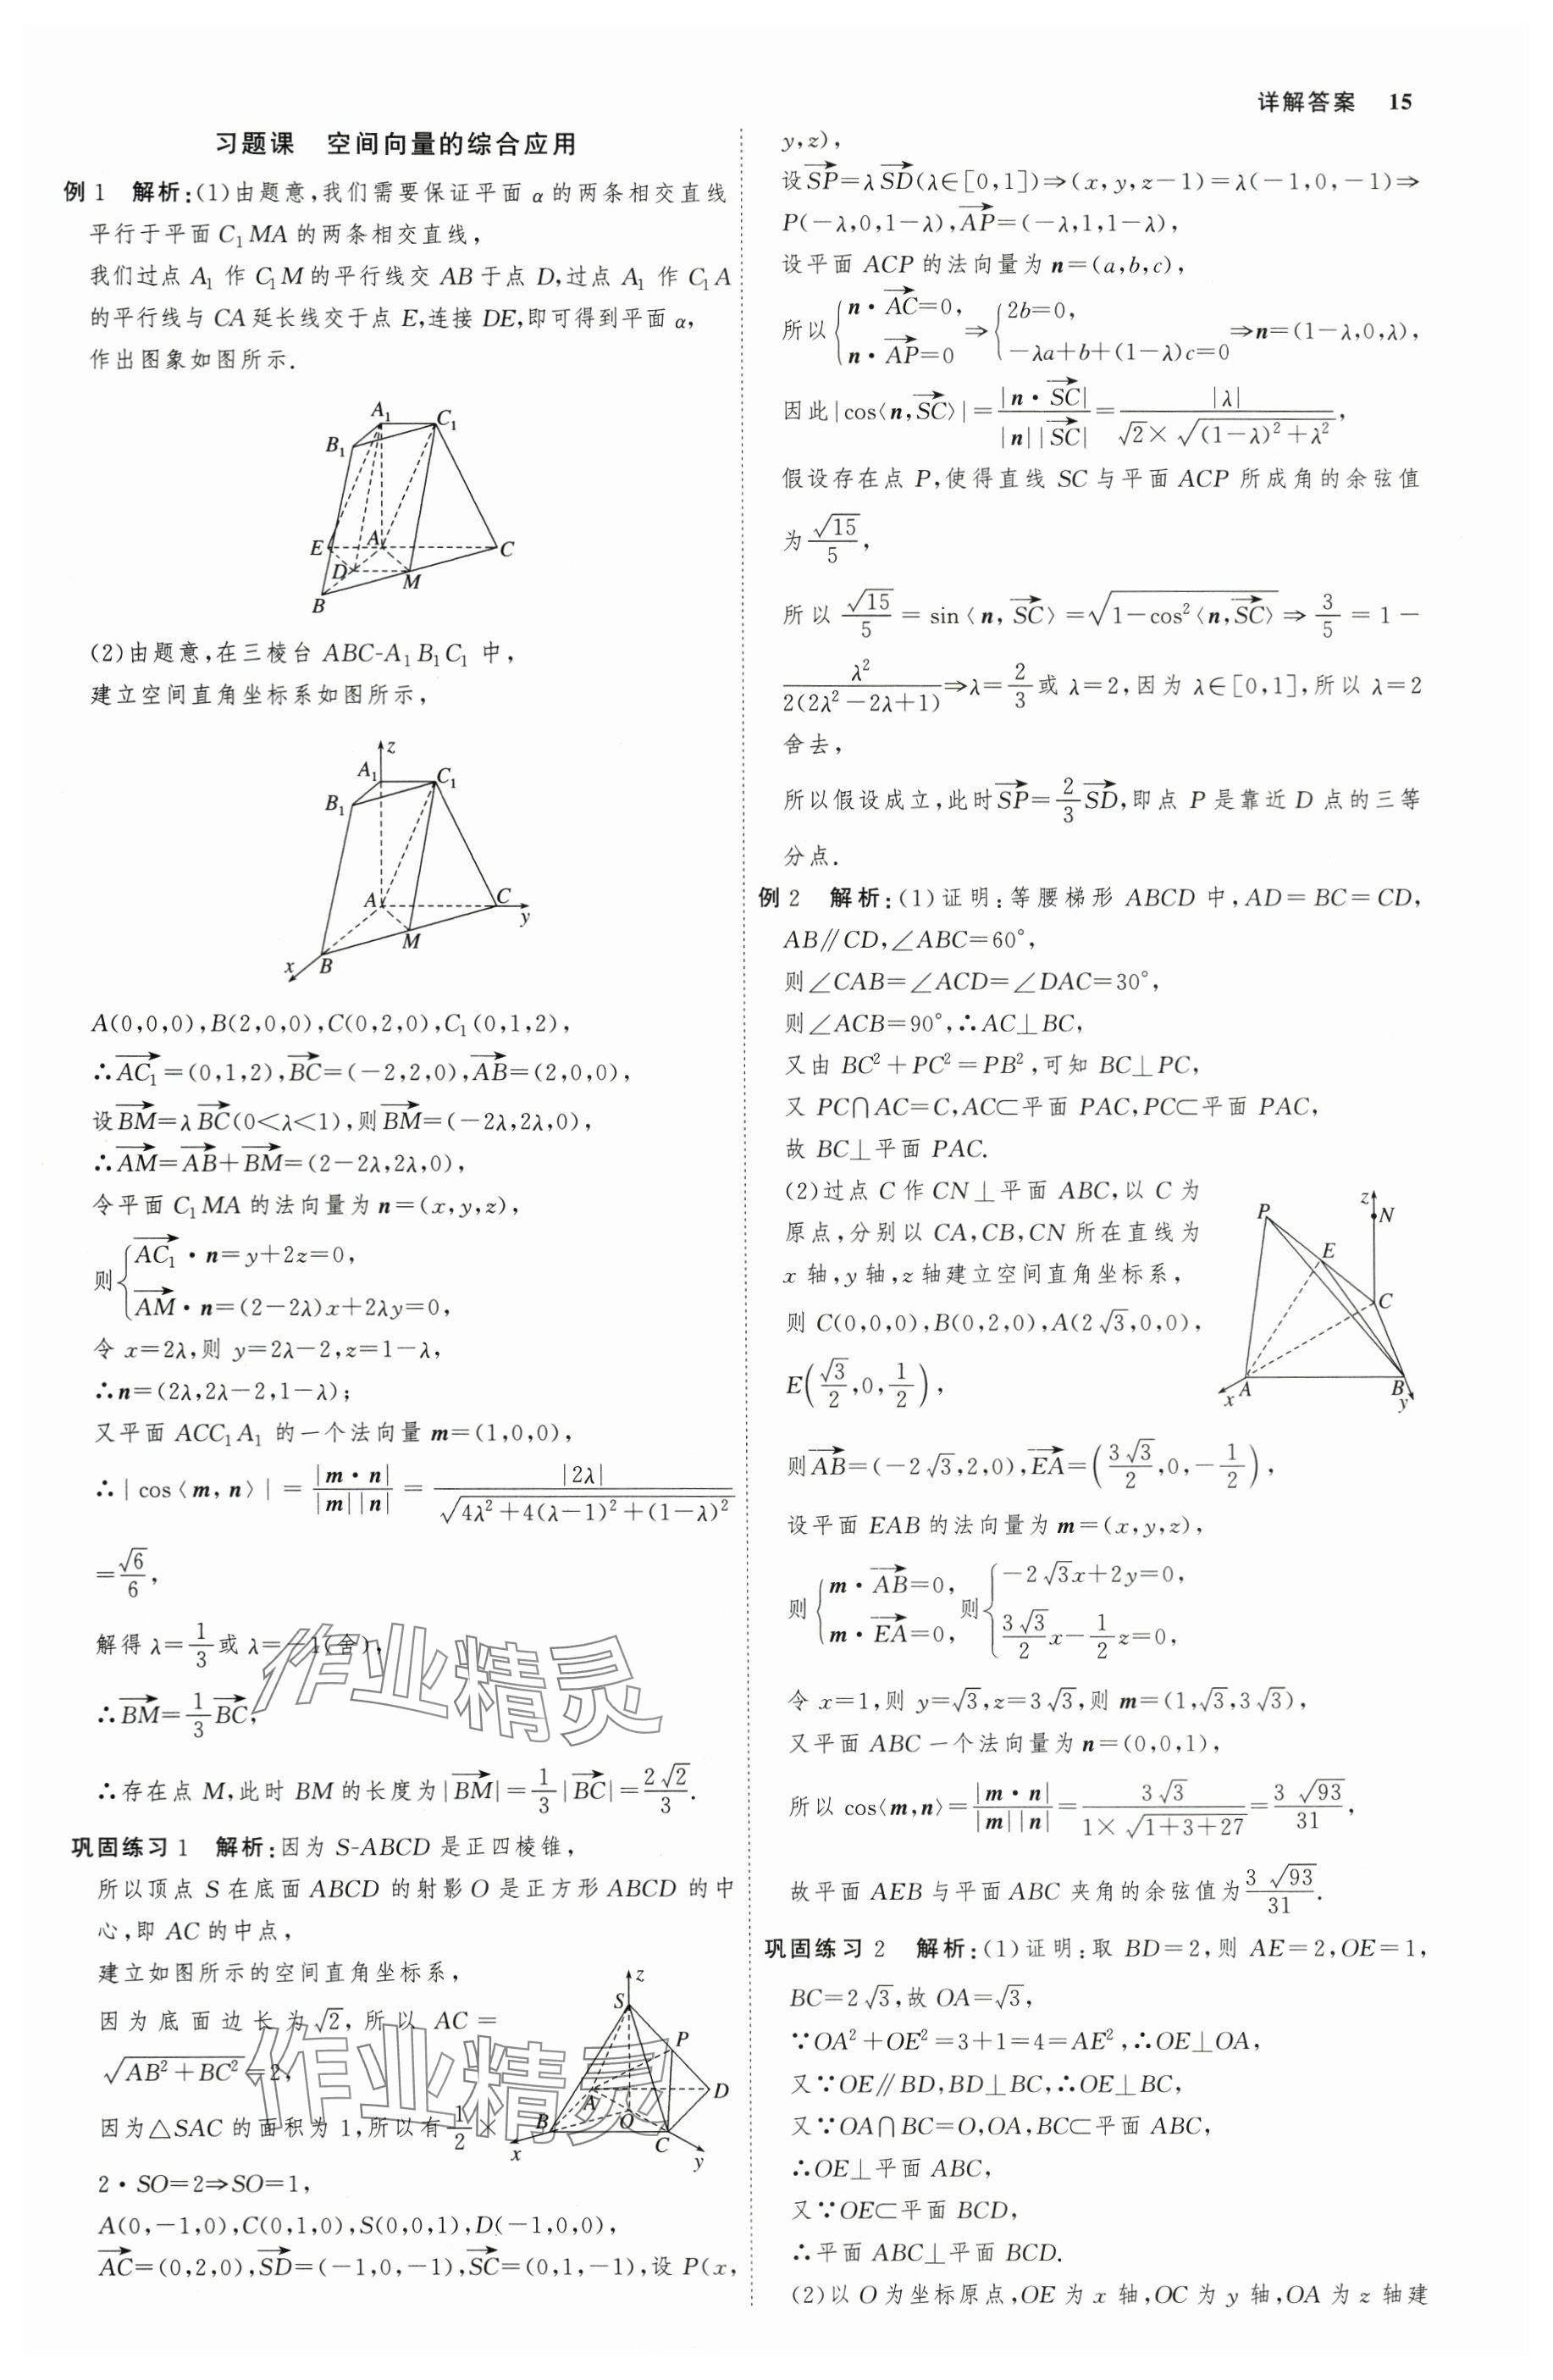 详解答案 15
习题课 空间向量的综合应用
例1 解析:(1)由题意,我们需要保证平面 α 的两条相交直线
平行于平面 C₁MA 的两条相交直线,
我们过点 A₁ 作 C₁M 的平行线交 AB 于点 D,过点 A₁ 作 C₁A
的平行线与 CA 延长线交于点 E,连接 DE,即可得到平面 α,
作出图象如图所示.
A₁
C₁
B₁
E
A
C
D
M
B
(2)由题意,在三棱台 ABC-A₁B₁C₁ 中,
建立空间直角坐标系如图所示,
z
A₁
C₁
B₁
A
C
y
M
x
B
A(0,0,0),B(2,0,0),C(0,2,0),C₁(0,1,2),
∴AC₁→=(0,1,2),BC→=(-2,2,0),AB→=(2,0,0),
设BM→=λBC→(0<λ<1),则BM→=(-2λ,2λ,0),
∴AM→=AB→+BM→=(2-2λ,2λ,0),
令平面 C₁MA 的法向量为 n=(x,y,z),
则{AC₁→·n=y+2z=0,
AM→·n=(2-2λ)x+2λy=0,
令 x=2λ,则 y=2λ-2,z=1-λ,
∴n=(2λ,2λ-2,1-λ);
又平面 ACC₁A₁ 的一个法向量 m=(1,0,0),
∴|cos⟨m,n⟩|=|m·n|/|m||n|=|2λ|/√(4λ²+4(λ-1)²+(1-λ)²)
=√6/6,
解得 λ=1/3或 λ=-1(舍),
∴BM→=1/3BC→,
∴存在点 M,此时 BM 的长度为|BM→|=1/3|BC→|=2√2/3.
巩固练习1 解析:因为 S-ABCD 是正四棱锥,
所以顶点 S 在底面 ABCD 的射影 O 是正方形 ABCD 的中
心,即 AC 的中点,
建立如图所示的空间直角坐标系,
因为底面边长为√2,所以 AC=
√(AB²+BC²)=2,
因为△SAC 的面积为 1,所以有1/2×
2·SO=2⇒SO=1,
z
S
P
A
D
B
O
C
x
y
A(0,-1,0),C(0,1,0),S(0,0,1),D(-1,0,0),
AC→=(0,2,0),SD→=(-1,0,-1),SC→=(0,1,-1),设 P(x,
y,z),
设SP→=λSD→(λ∈[0,1])⇒(x,y,z-1)=λ(-1,0,-1)⇒
P(-λ,0,1-λ),AP→=(-λ,1,1-λ),
设平面 ACP 的法向量为 n=(a,b,c),
所以{n·AC→=0, n·AP→=0⇒{2b=0, -λa+b+(1-λ)c=0⇒n=(1-λ,0,λ),
因此|cos⟨n,SC→⟩|=|n·SC→|/|n||SC→|=|λ|/√2×√((1-λ)²+λ²),
假设存在点 P,使得直线 SC 与平面 ACP 所成角的余弦值
为√15/5,
所以√15/5=sin⟨n,SC→⟩=√(1-cos²⟨n,SC→⟩)⇒3/5=1-
λ²/2(2λ²-2λ+1)⇒λ=2/3或 λ=2,因为 λ∈[0,1],所以 λ=2
舍去,
所以假设成立,此时SP→=2/3SD→,即点 P 是靠近 D 点的三等
分点.
例2 解析:(1)证明:等腰梯形 ABCD 中,AD=BC=CD,
AB∥CD,∠ABC=60°,
则∠CAB=∠ACD=∠DAC=30°,
则∠ACB=90°,∴AC⊥BC,
又由 BC²+PC²=PB²,可知 BC⊥PC,
又 PC∩AC=C,AC⊂平面 PAC,PC⊂平面 PAC,
故 BC⊥平面 PAC.
(2)过点 C 作 CN⊥平面 ABC,以 C 为
原点,分别以 CA,CB,CN 所在直线为
x 轴,y 轴,z 轴建立空间直角坐标系,
则 C(0,0,0),B(0,2,0),A(2√3,0,0),
E(√3/2,0,1/2),
z
P
N
E
C
x
A
B
y
则AB→=(-2√3,2,0),EA→=(3√3/2,0,-1/2),
设平面 EAB 的法向量为 m=(x,y,z),
则{m·AB→=0, m·EA→=0,则{-2√3x+2y=0, 3√3/2x-1/2z=0,
令 x=1,则 y=√3,z=3√3,则 m=(1,√3,3√3),
又平面 ABC 一个法向量为 n=(0,0,1),
所以 cos⟨m,n⟩=|m·n|/|m||n|=3√3/1×√(1+3+27)=3√93/31,
故平面 AEB 与平面 ABC 夹角的余弦值为3√93/31.
巩固练习2 解析:(1)证明:取 BD=2,则 AE=2,OE=1,
BC=2√3,故 OA=√3,
∵OA²+OE²=3+1=4=AE²,∴OE⊥OA,
又∵OE∥BD,BD⊥BC,∴OE⊥BC,
又∵OA∩BC=O,OA,BC⊂平面 ABC,
∴OE⊥平面 ABC,
又∵OE⊂平面 BCD,
∴平面 ABC⊥平面 BCD.
(2)以 O 为坐标原点,OE 为 x 轴,OC 为 y 轴,OA 为 z 轴建
作业精灵
作业精灵